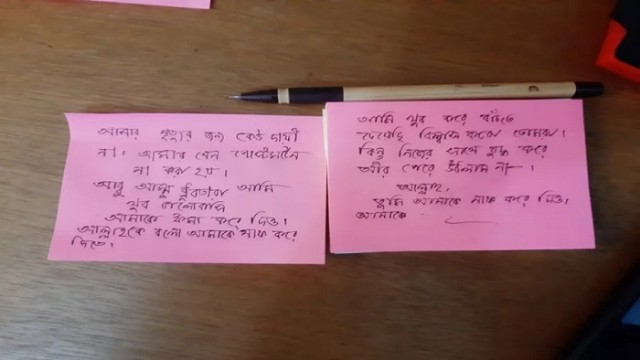 আমার মৃত্যুর জন্য কেউ দায়ী
না। আমার যেন পোস্টমর্টেম
না করা হয়।
আব্বু আম্মু আমি
খুব ভালোবাসি
আমাকে ক্ষমা করে দিও।
আল্লাহকে বলো আমাকে মাফ করে
দিতে।
আমি খুব করে বাঁচতে
চেয়েছি বিশ্বাস করো তোমরা।
কিন্তু নিজের সাথে যুদ্ধ করে
আর পেরে উঠলাম না।
আল্লাহ,
তুমি আমাকে মাফ করে দিও।
আমাকে